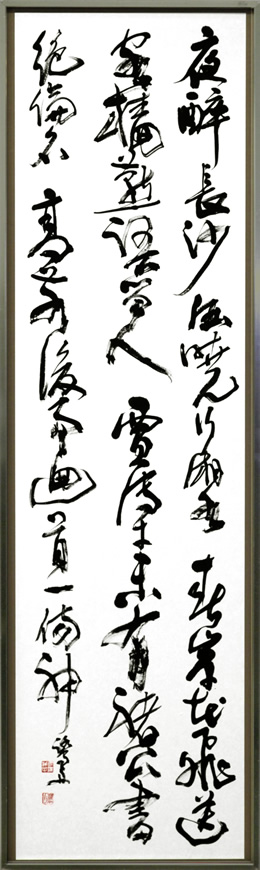 夜醉長沙酒曉行湘水春岸花飛送
客檣燕語留人賈傅才未有褚公書
絕倫名高前後事迴首一傷神